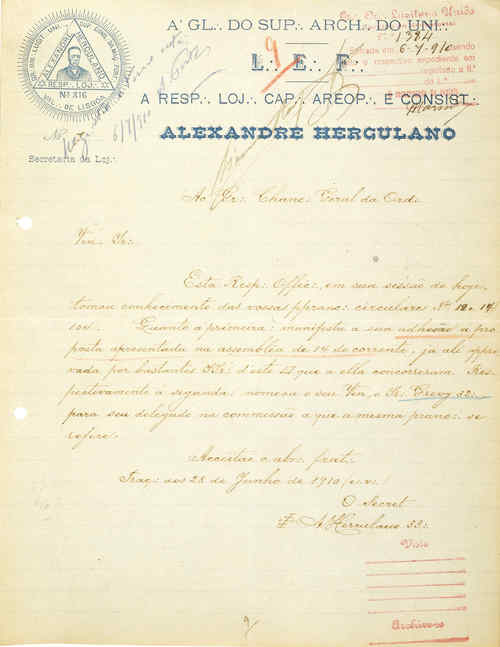 A' GL∴ DO SUP∴ ARCH∴ DO UNI∴
L∴ E∴ F∴
A RESP∴ LOJ∴ CAP∴ AREOP∴ E CONSIST∴
ALEXANDRE HERCULANO
ALEXANDRE HERCULANO
RESP∴ LOJ∴
Nº 316
VAL∴ DE LISBOA
Gr∴ Or∴ Lusitano Unido
Nº 1384
Entrada em 6-7-910
o respectivo expediente em
9
6/7/910
Secretaria da Loj∴
Ao Gr∴ Chanc∴ Geral da Ord∴
Ven∴ Ir∴
Esta Resp∴ Offic∴, em sua sessão de hoje,
tomou conhecimento das vossas ppranc∴ circulares Nº 12 e 14
104. Quanto a primeira: manifesta a sua adhesão a pro
posta apresentada na assembleia de 14 do corrente, já ali appro
vada por bastantes IIr∴ d'este que a ella concorreram. Res
pectivamente á segunda: nomeou o seu Ven∴ o Ir∴ 33∴
para seu delegado na commissão a que a mesma pranc∴ se
refere.
Acceitae o abr∴ frat∴
Traç∴ aos 28 de Junho de 1910 (e∴ v∴)
O Secret
A Herculano 33∴
Visto
Archive-se
9